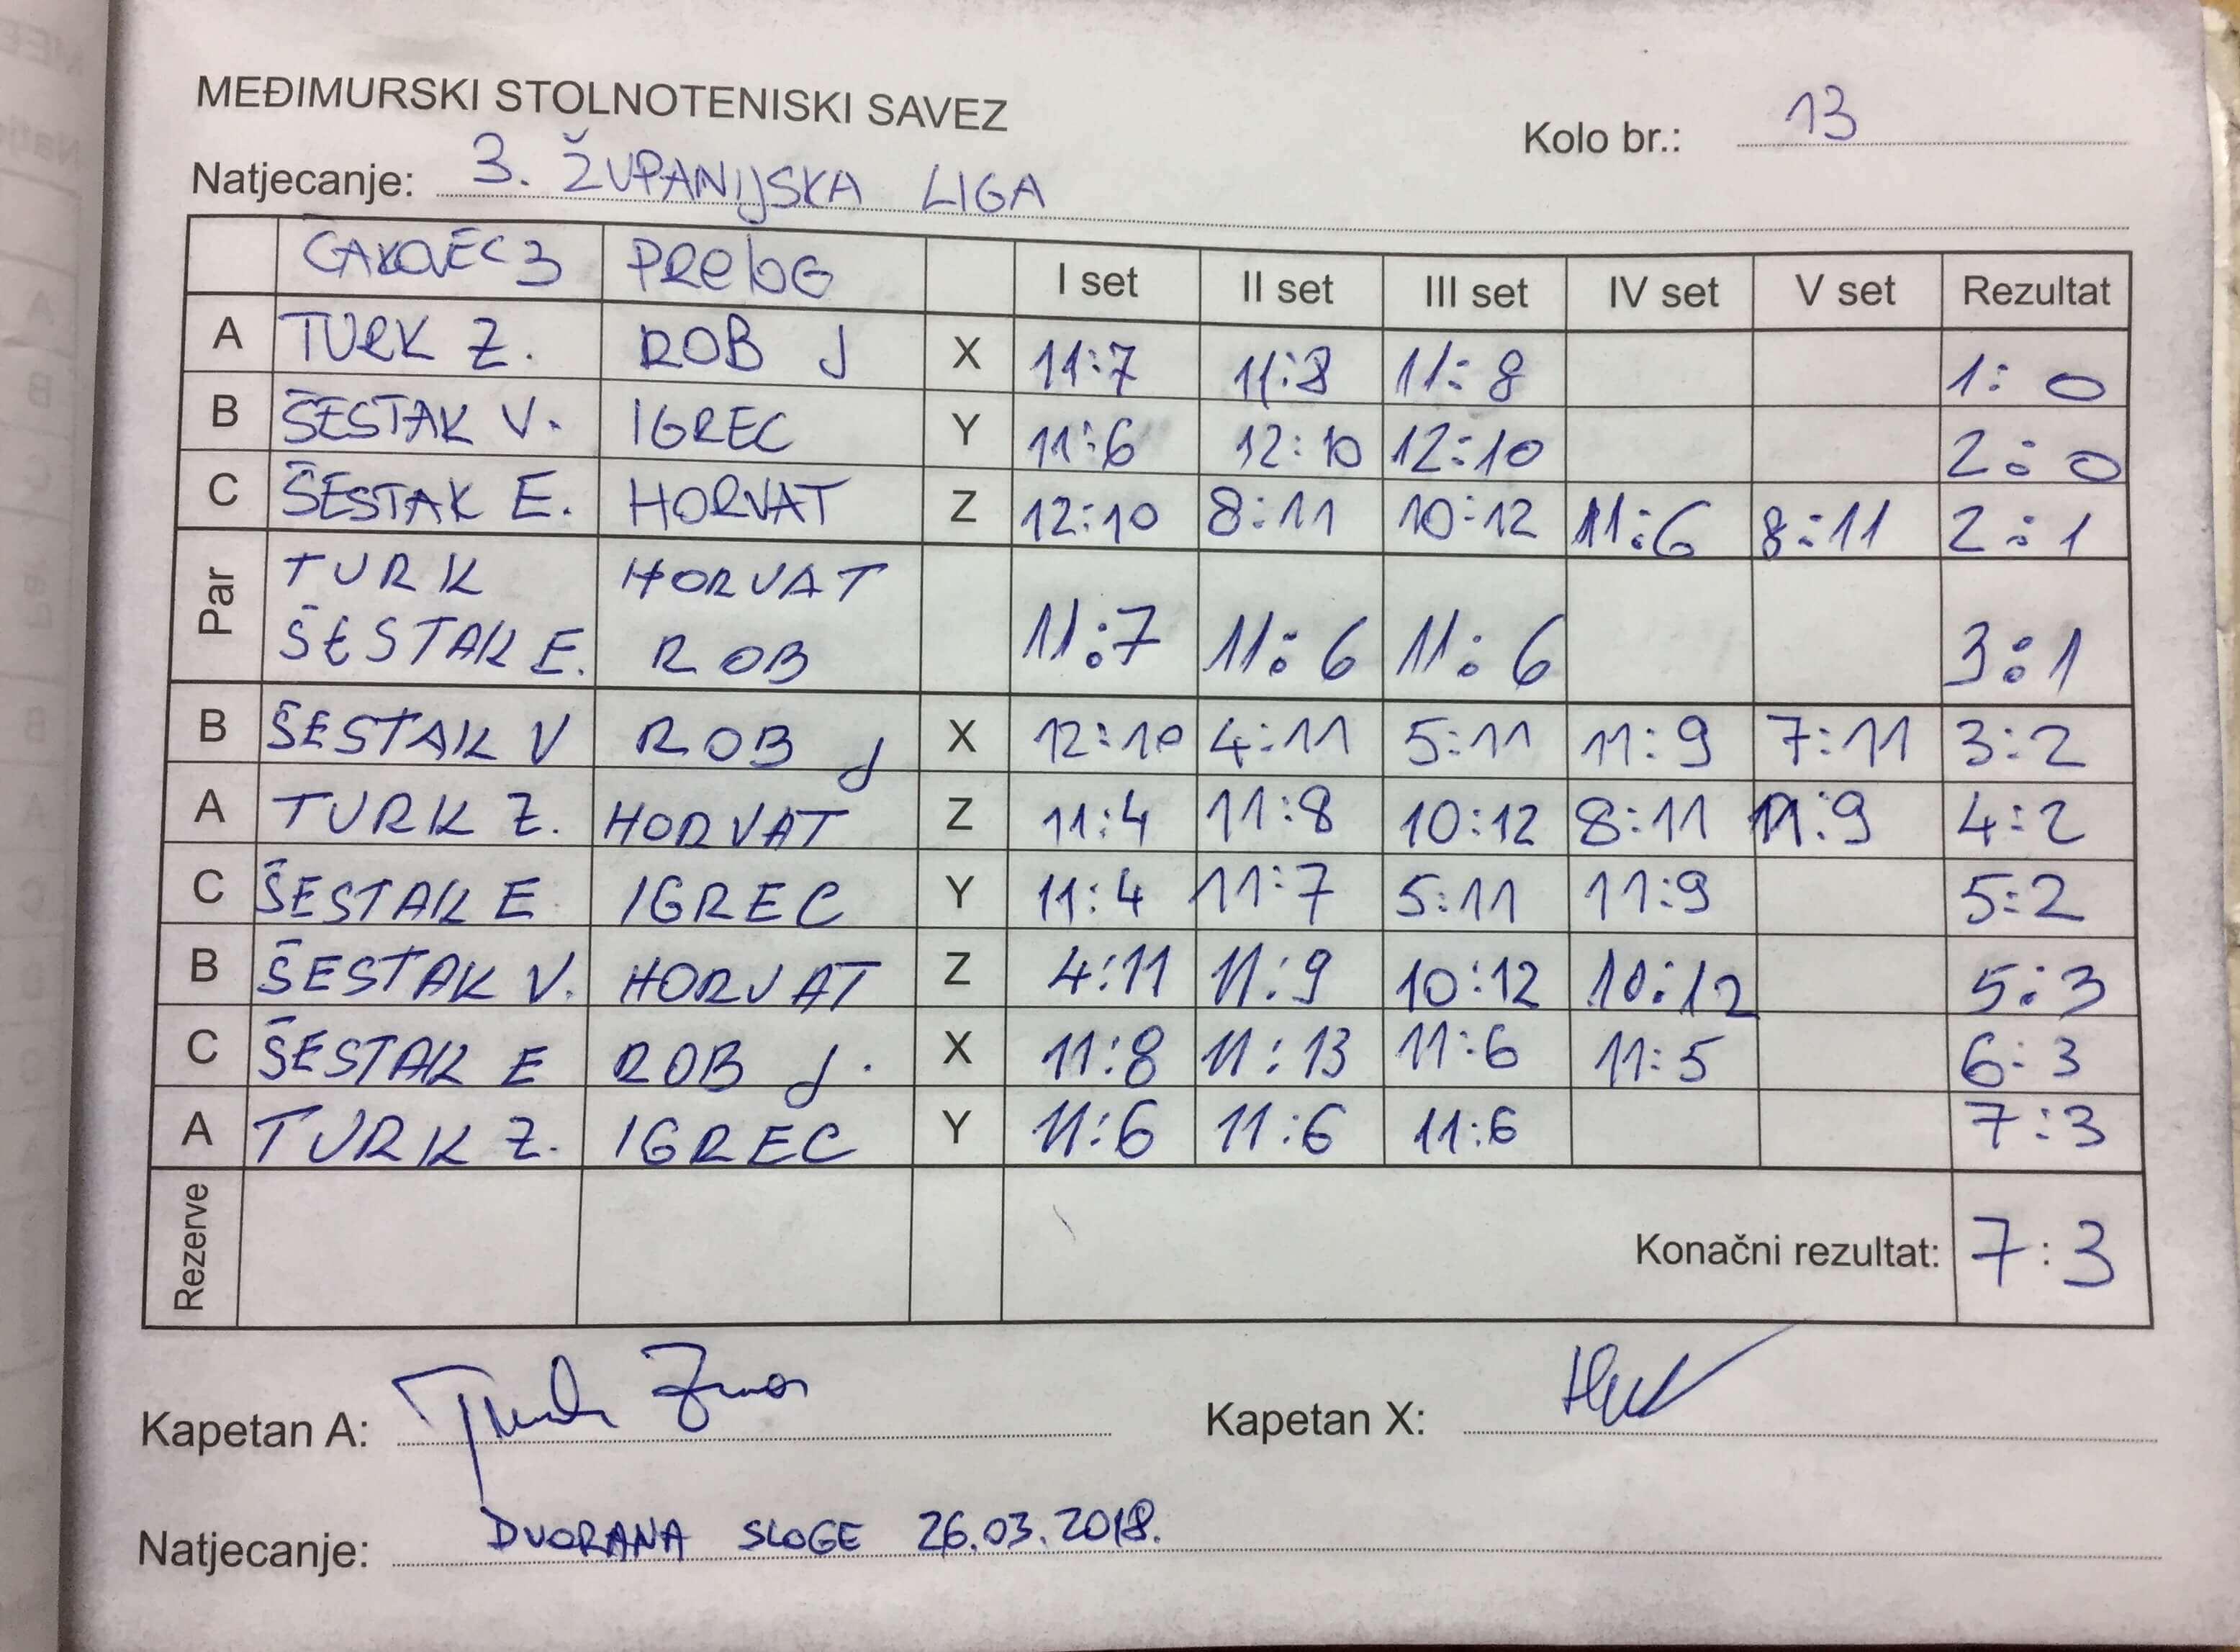 MEĐIMURSKI STOLNOTENISKI SAVEZ
Kolo br.: 13
Natjecanje: 3. ŽUPANIJSKA LIGA
CAKOVEC 3 PRELOG I set II set III set IV set V set Rezultat
A TURK Z. ROB J X 11:7 11:8 11:8 1:0
B ŠESTAK V. IGREC Y 11:6 12:10 12:10 2:0
C ŠESTAK E. HORVAT Z 12:10 8:11 10:12 11:6 8:11 2:1
Par TURK HORVAT
ŠESTAK E. ROB 11:7 11:6 11:6 3:1
B ŠESTAK V ROB J X 12:10 4:11 5:11 11:9 7:11 3:2
A TURK Z. HORVAT Z 11:4 11:8 10:12 8:11 11:9 4:2
C ŠESTAK E IGREC Y 11:4 11:7 5:11 11:9 5:2
B ŠESTAK V. HORVAT Z 4:11 11:9 10:12 10:12 5:3
C ŠESTAK E ROB J. X 11:8 11:13 11:6 11:5 6:3
A TURK Z. IGREC Y 11:6 11:6 11:6 7:3
Rezerve Konačni rezultat: 7:3
Kapetan A: Kapetan X:
Natjecanje: DVORANA SLOGE 26.03.2018.